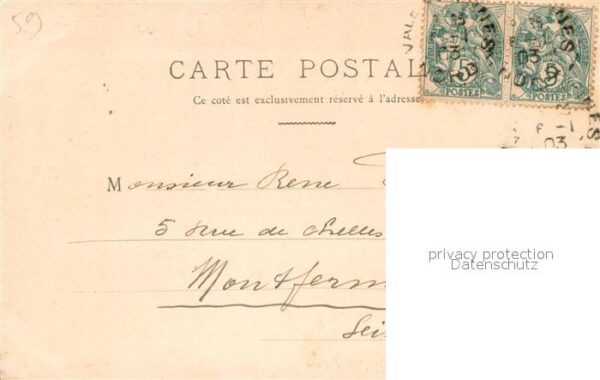 59
CARTE POSTAL
Ce côté est exclusivement réservé à l'adresse
5 POSTES 5 POSTES
VALE
NES
03
Monsieur Rene
5 Rue de Chelles
Montferm
Sei
privacy protection
Datenschutz